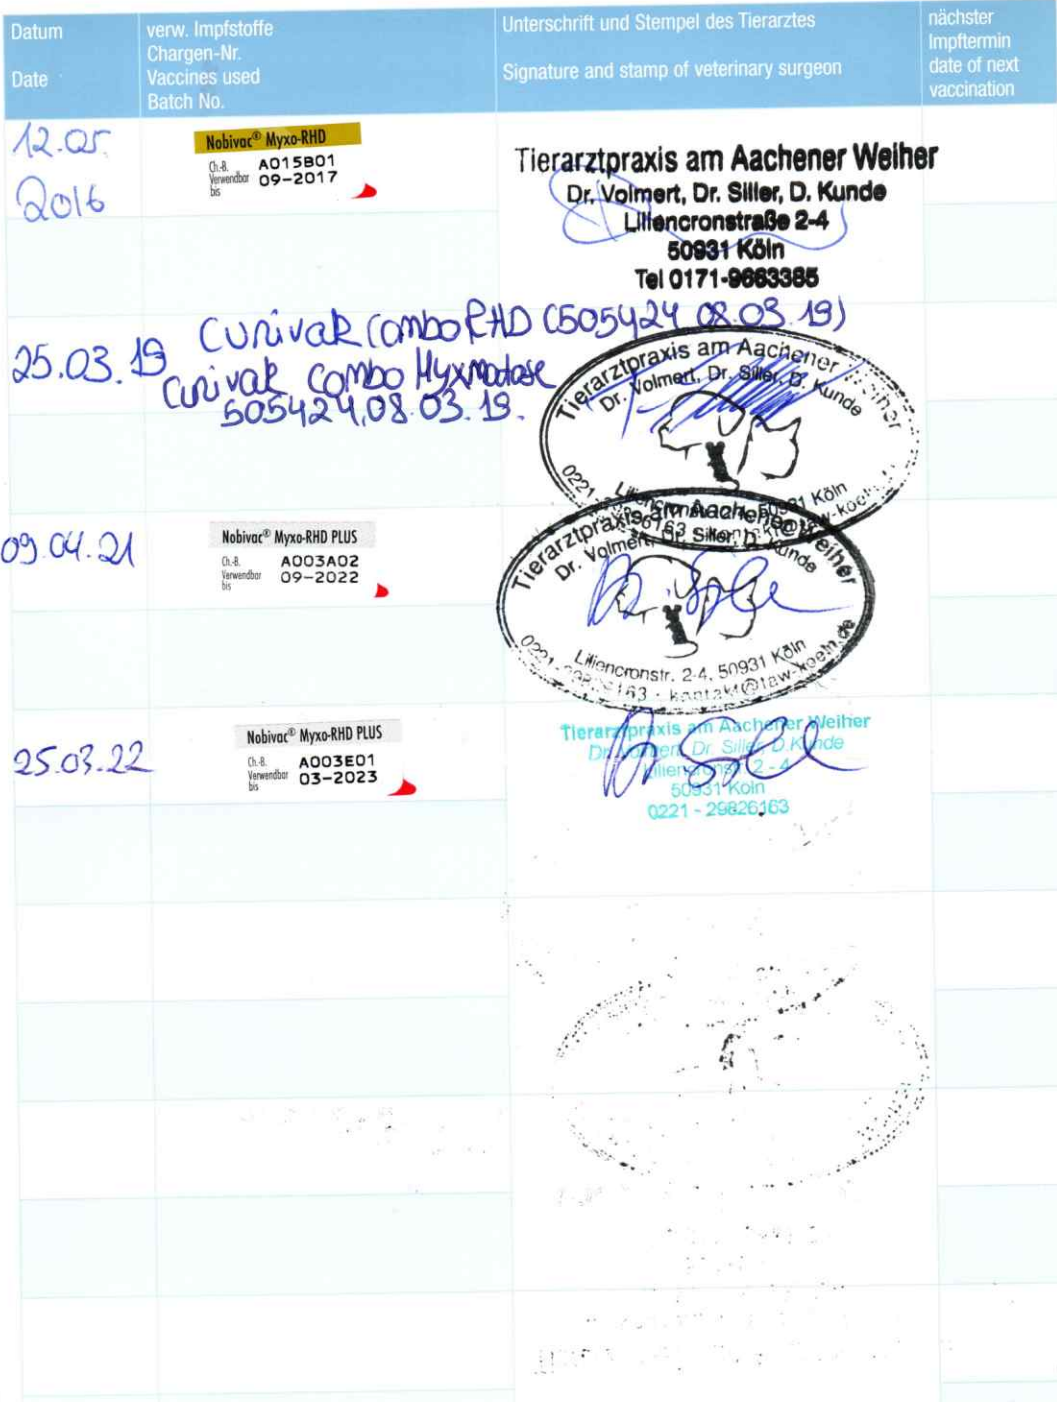 Datum
Date
verw. Impfstoffe
Chargen-Nr.
Vaccines used
Batch No.
Unterschrift und Stempel des Tierarztes
Signature and stamp of veterinary surgeon
nächster
Impftermin
date of next
vaccination
12.05.
2016
Nobivac® Myxo-RHD
Ch.-B. A015B01
Verwendbar bis 09-2017
Tierarztpraxis am Aachener Weiher
Dr. Volmert, Dr. Siller, D. Kunde
Liliencronstraße 2-4
50931 Köln
Tel 0171-9663385
25.03.19
Cunivak Combo RHD (505424 08.03.19)
Cunivak Combo Myxmatose
505424, 08.03.19.
Tierarztpraxis am Aachener Weiher
Dr. Volmert, Dr. Siller, D. Kunde
0221
50931 Köln
09.04.21
Nobivac® Myxo-RHD PLUS
Ch.-B. A003A02
Verwendbar bis 09-2022
Tierarztpraxis am Aachener Weiher
Dr. Volmert, Dr. Siller, D. Kunde
Liliencronstr. 2-4, 50931 Köln
0221-29826163 - kontakt@taw-koeln.de
25.03.22
Nobivac® Myxo-RHD PLUS
Ch.-B. A003E01
Verwendbar bis 03-2023
Tierarztpraxis am Aachener Weiher
Dr. Volmert, Dr. Siller, D. Kunde
Liliencronstr. 2 - 4
50931 Köln
0221 - 29826163